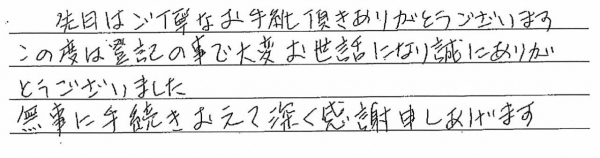 先日はご丁寧なお手紙頂きありがとうございます
この度は登記の事で大変お世話になり誠にありが
とうございました
無事に手続きおえて深く感謝申しあげます